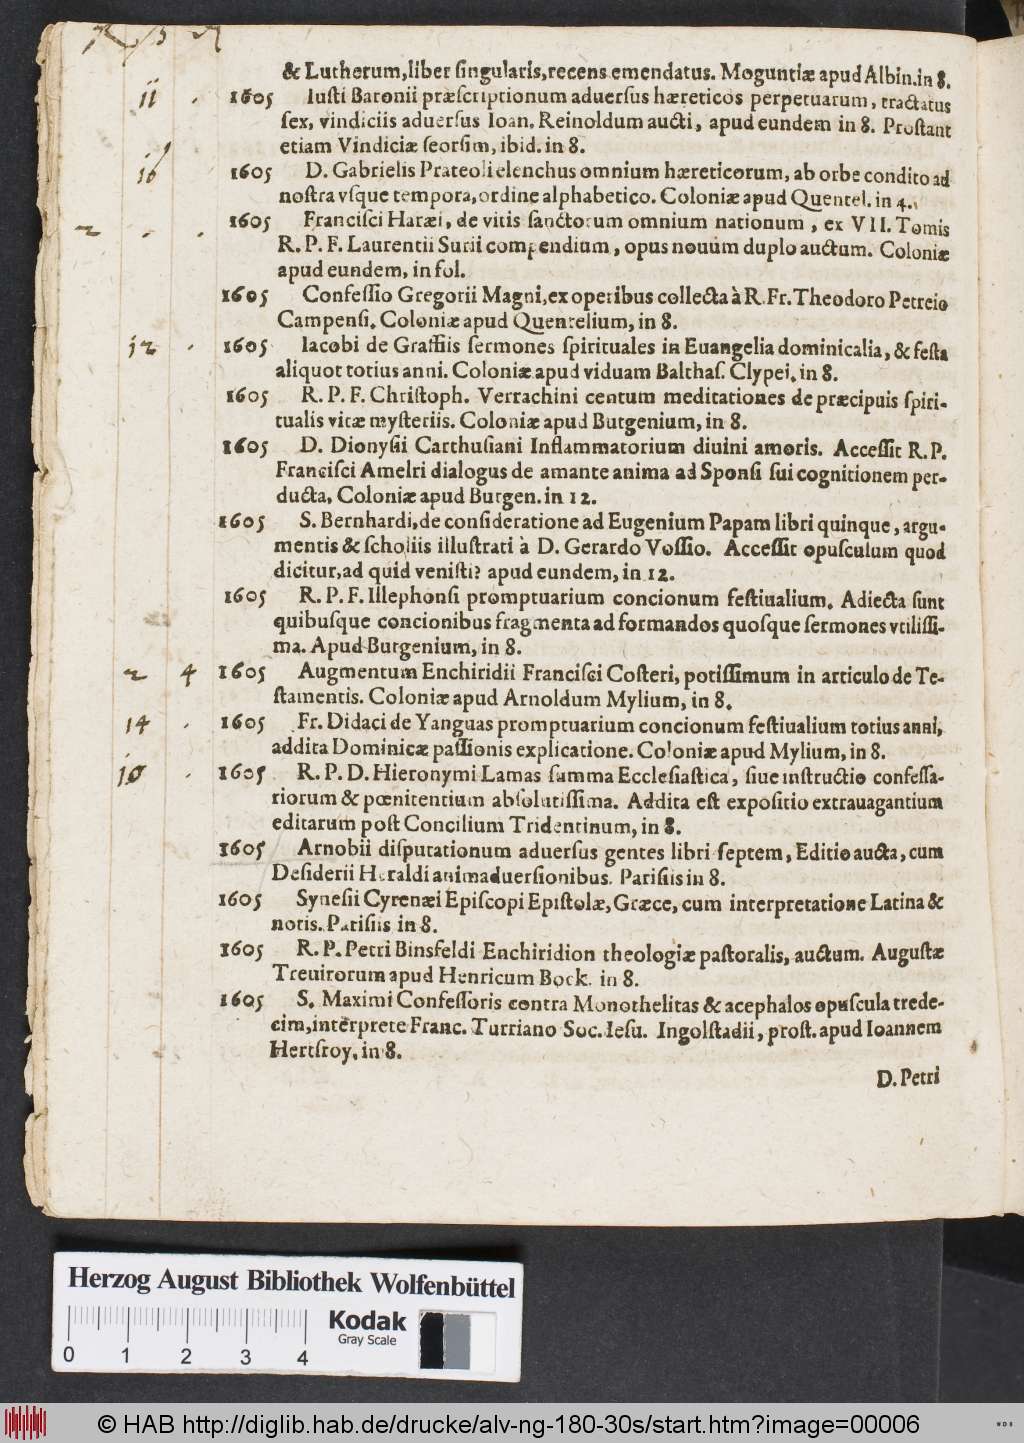 & Lutherum, liber singularis, recens emendatus. Moguntiæ apud Albin. in 8.
11 . 1605 Iusti Baronii præscriptionum aduersus hæreticos perpetuarum, tractatus
sex, vindiciis aduersus Ioan. Reinoldum aucti, apud eundem in 8. Prostant
etiam Vindiciæ seorsim, ibid. in 8.
16 1605 D. Gabrielis Prateoli elenchus omnium hæreticorum, ab orbe condito ad
nostra vsque tempora, ordine alphabetico. Coloniæ apud Quentel. in 4.
2 . . 1605 Francisci Haræi, de vitis sanctorum omnium nationum, ex VII. Tomis
R. P. F. Laurentii Surii compendium, opus nouum duplo auctum. Coloniæ
apud eundem, in fol.
1605 Confessio Gregorii Magni, ex operibus collecta à R. Fr. Theodoro Petreio
Campensi. Coloniæ apud Quentelium, in 8.
12 . 1605 Iacobi de Graffiis sermones spirituales in Euangelia dominicalia, & festa
aliquot totius anni. Coloniæ apud viduam Balthas. Clypei. in 8.
1605 R. P. F. Christoph. Verrachini centum meditationes de præcipuis spiri-
tualis vitæ mysteriis. Coloniæ apud Butgenium, in 8.
1605 D. Dionysii Carthusiani Inflammatorium diuini amoris. Accessit R. P.
Francisci Amelri dialogus de amante anima ad Sponsi sui cognitionem per-
ducta. Coloniæ apud Butgen. in 12.
1605 S. Bernhardi, de consideratione ad Eugenium Papam libri quinque, argu-
mentis & scholiis illustrati à D. Gerardo Vossio. Accessit opusculum quod
dicitur, ad quid venisti? apud eundem, in 12.
1605 R. P. F. Illephonsi promptuarium concionum festiualium. Adiecta sunt
quibusque concionibus fragmenta ad formandos quosque sermones vtilissi-
ma. Apud Butgenium, in 8.
2 4 1605 Augmentum Enchiridii Francisci Costeri, potissimum in articulo de Te-
stamentis. Coloniæ apud Arnoldum Mylium, in 8.
14 . 1605 Fr. Didaci de Yanguas promptuarium concionum festiualium totius anni,
addita Dominicæ passionis explicatione. Coloniæ apud Mylium, in 8.
10 . 1605 R. P. D. Hieronymi Lamas summa Ecclesiastica, siue instructio confessa-
riorum & pœnitentium absolutissima. Addita est expositio extrauagantium
editarum post Concilium Tridentinum, in 8.
1605 Arnobii disputationum aduersus gentes libri septem, Editio aucta, cum
Desiderii Heraldi animaduersionibus. Parisiis in 8.
1605 Synesii Cyrenæi Episcopi Epistolæ, Græce, cum interpretatione Latina &
notis. Parisiis in 8.
1605 R. P. Petri Binsfeldi Enchiridion theologiæ pastoralis, auctum. Augustæ
Treuirorum apud Henricum Bock. in 8.
1605 S. Maximi Confessoris contra Monothelitas & acephalos opuscula trede-
cim, interprete Franc. Turriano Soc. Iesu. Ingolstadii, prost. apud Ioannem
Hertsroy. in 8.
D. Petri
Herzog August Bibliothek Wolfenbüttel
Kodak
Gray Scale
0 1 2 3 4
© HAB http://diglib.hab.de/drucke/alv-ng-180-30s/start.htm?image=00006